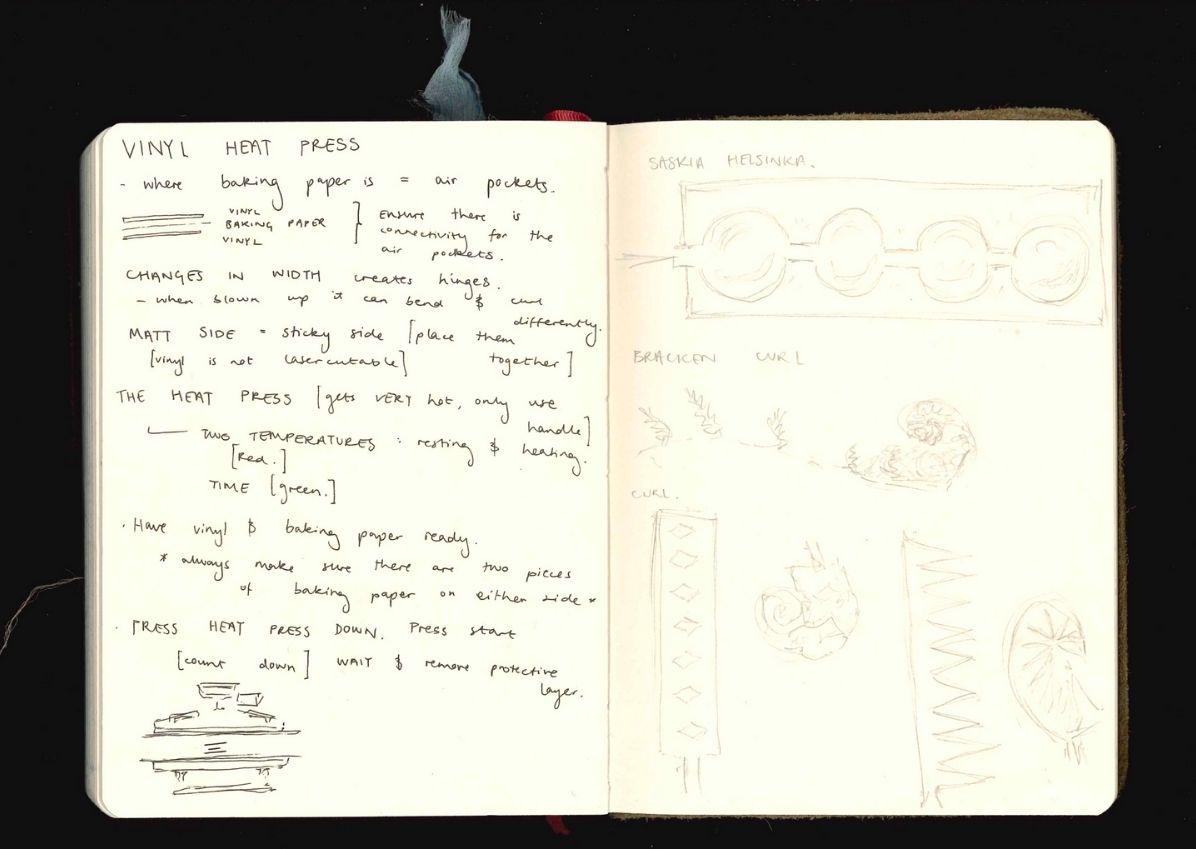 VINYL HEAT PRESS
- where baking paper is = air pockets.
VINYL
BAKING PAPER
VINYL
Ensure there is
connectivity for the
air pockets.
CHANGES IN WIDTH creates hinges.
- when blown up it can bend & curl
differently.
MATT SIDE = sticky side [place them
together]
[vinyl is not lasercutable]
THE HEAT PRESS [gets VERY hot, only use
handle]
TWO TEMPERATURES : resting & heating.
[Red.]
TIME [green.]
. Have vinyl & baking paper ready.
* always make sure there are two pieces
of baking paper on either side *
. PRESS HEAT PRESS DOWN. Press start
[count down] WAIT & remove protective
layer.
SASKIA HELSINKA.
BRACKEN CURL
CURL.